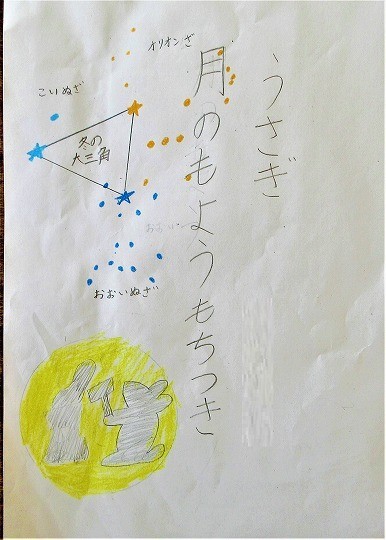 うさぎ
月のもようもちつき
オリオンざ
こいぬざ
冬の
大三角
おおいぬざ